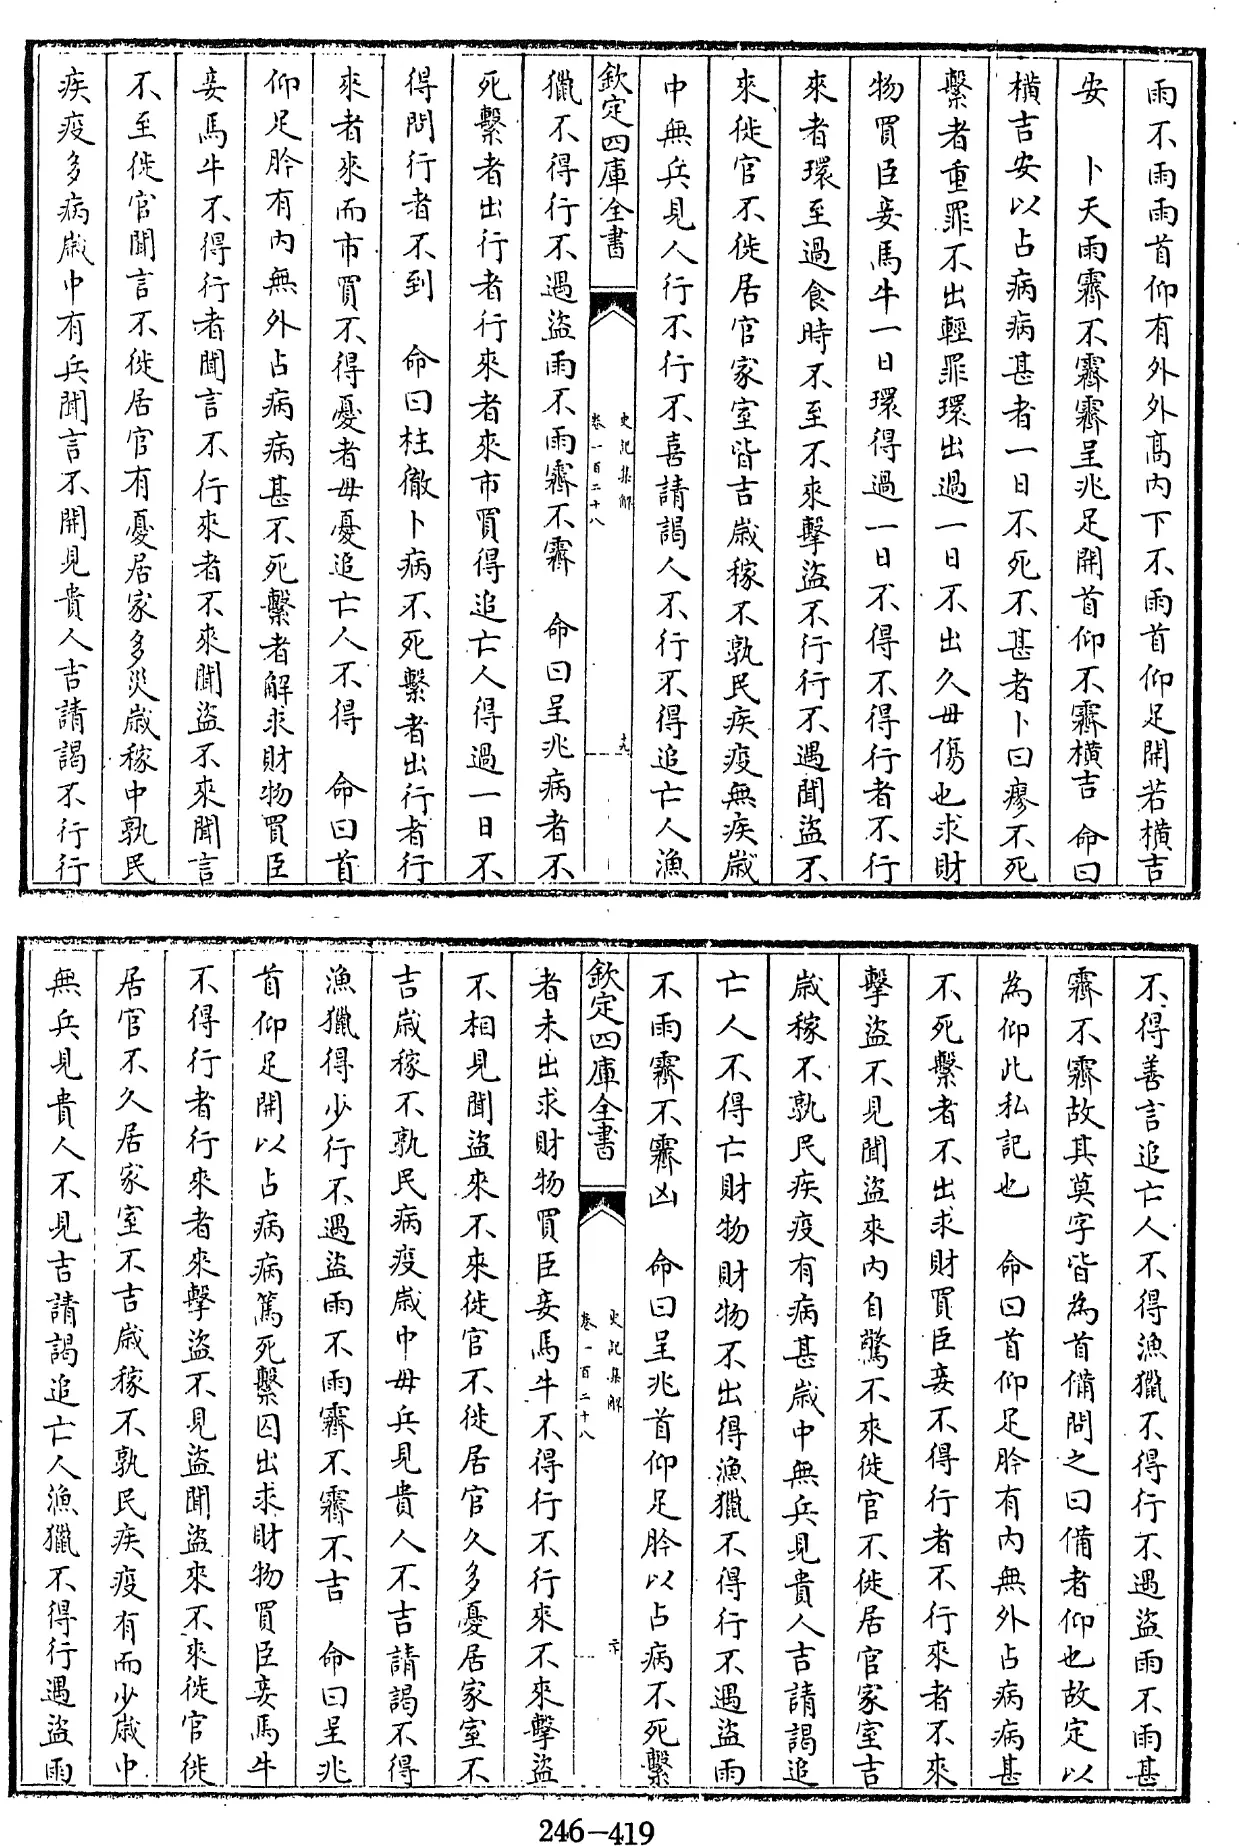 雨不雨雨首仰有外外髙内下不雨首仰足開若横吉
安　卜天雨霽不霽霽呈兆足開首仰不霽横吉　命曰
横吉安以占病病甚者一日不死不甚者卜曰瘳不死
繫者重罪不出輕罪環出過一日不出久毋傷也求財
物買臣妾馬牛一日環得過一日不得不得行者不行
來者環至過食時不至不來擊盜不行行不遇聞盜不
來徙官不徙居官家室皆吉嵗稼不孰民疾疫無疾嵗
中無兵見人行不行不喜請謁人不行不得追亡人漁
欽定四庫全書
史記集解
卷一百二十八
十九
獵不得行不遇盜雨不雨霽不霽　命曰呈兆病者不
死繫者出行者行來者來市買得追亡人得過一日不
得問行者不到　命曰柱徹卜病不死繫者出行者行
來者來而市買不得憂者毋憂追亡人不得　命曰首
仰足肣有内無外占病病甚不死繫者解求財物買臣
妾馬牛不得行者聞言不行來者不來聞盜不來聞言
不至徙官聞言不徙居官有憂居家多災嵗稼中孰民
疾疫多病嵗中有兵聞言不開見貴人吉請謁不行行
不得善言追亡人不得漁獵不得行不遇盜雨不雨甚
霽不霽故其莫字皆為首備問之曰備者仰也故定以
為仰此私記也　命曰首仰足肣有内無外占病病甚
不死繫者不出求財買臣妾不得行者不行來者不來
擊盜不見聞盜來内自驚不來徙官不徙居官家室吉
嵗稼不孰民疾疫有病甚嵗中無兵見貴人吉請謁追
亡人不得亡財物財物不出得漁獵不得行不遇盜雨
不雨霽不霽凶　命曰呈兆首仰足肣以占病不死繫
欽定四庫全書
史記集解
卷一百二十八
二十
者未出求財物買臣妾馬牛不得行不行來不來擊盜
不相見聞盜來不來徙官不徙居官久多憂居家室不
吉嵗稼不孰民病疫嵗中毋兵見貴人不吉請謁不得
漁獵得少行不遇盜雨不雨霽不霽不吉　命曰呈兆
首仰足開以占病病篤死繫囚出求財物買臣妾馬牛
不得行者行來者來擊盜不見盜聞盜來不來徙官徙
居官不久居家室不吉嵗稼不孰民疾疫有而少嵗中
無兵見貴人不見吉請謁追亡人漁獵不得行遇盜雨
246-419